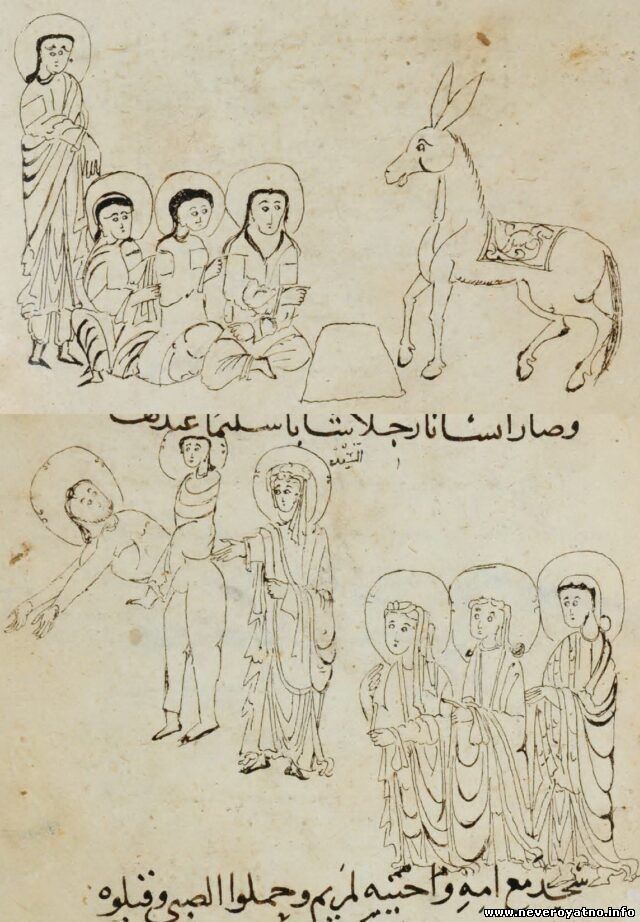 وصار انسانا رجلا شابا سليما
السيّده
سجد مع امه واختيه لمريم وحملوا الصبي وقبلوه
www.neveroyatno.info